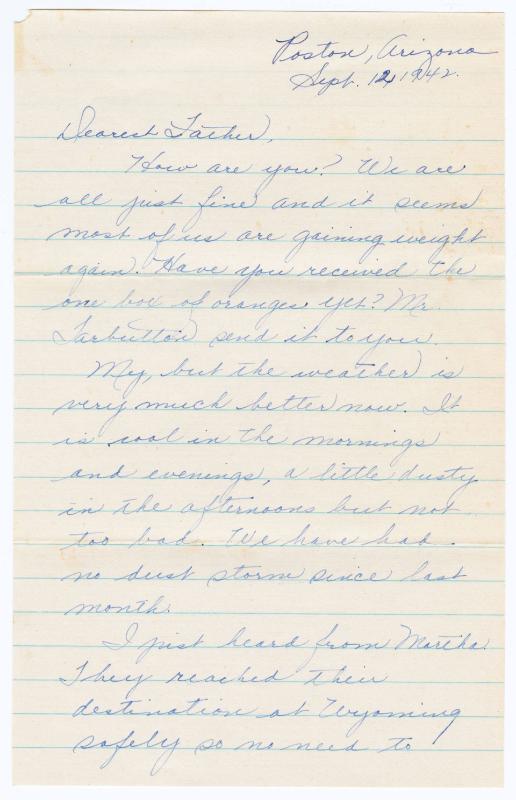 Poston, Arizona
Sept. 12, 1942.
Dearest Father,
How are you? We are
all just fine and it seems
most of us are gaining weight
again. Have you received the
one box of oranges yet? Mr.
Tarbutton send it to you.
My, but the weather is
very much better now. It
is cool in the mornings
and evenings, a little dusty
in the afternoons but not
too bad. We have had
no dust storm since last
month.
I just heard from Martha.
They reached their
destination at Wyoming
safely so no need to